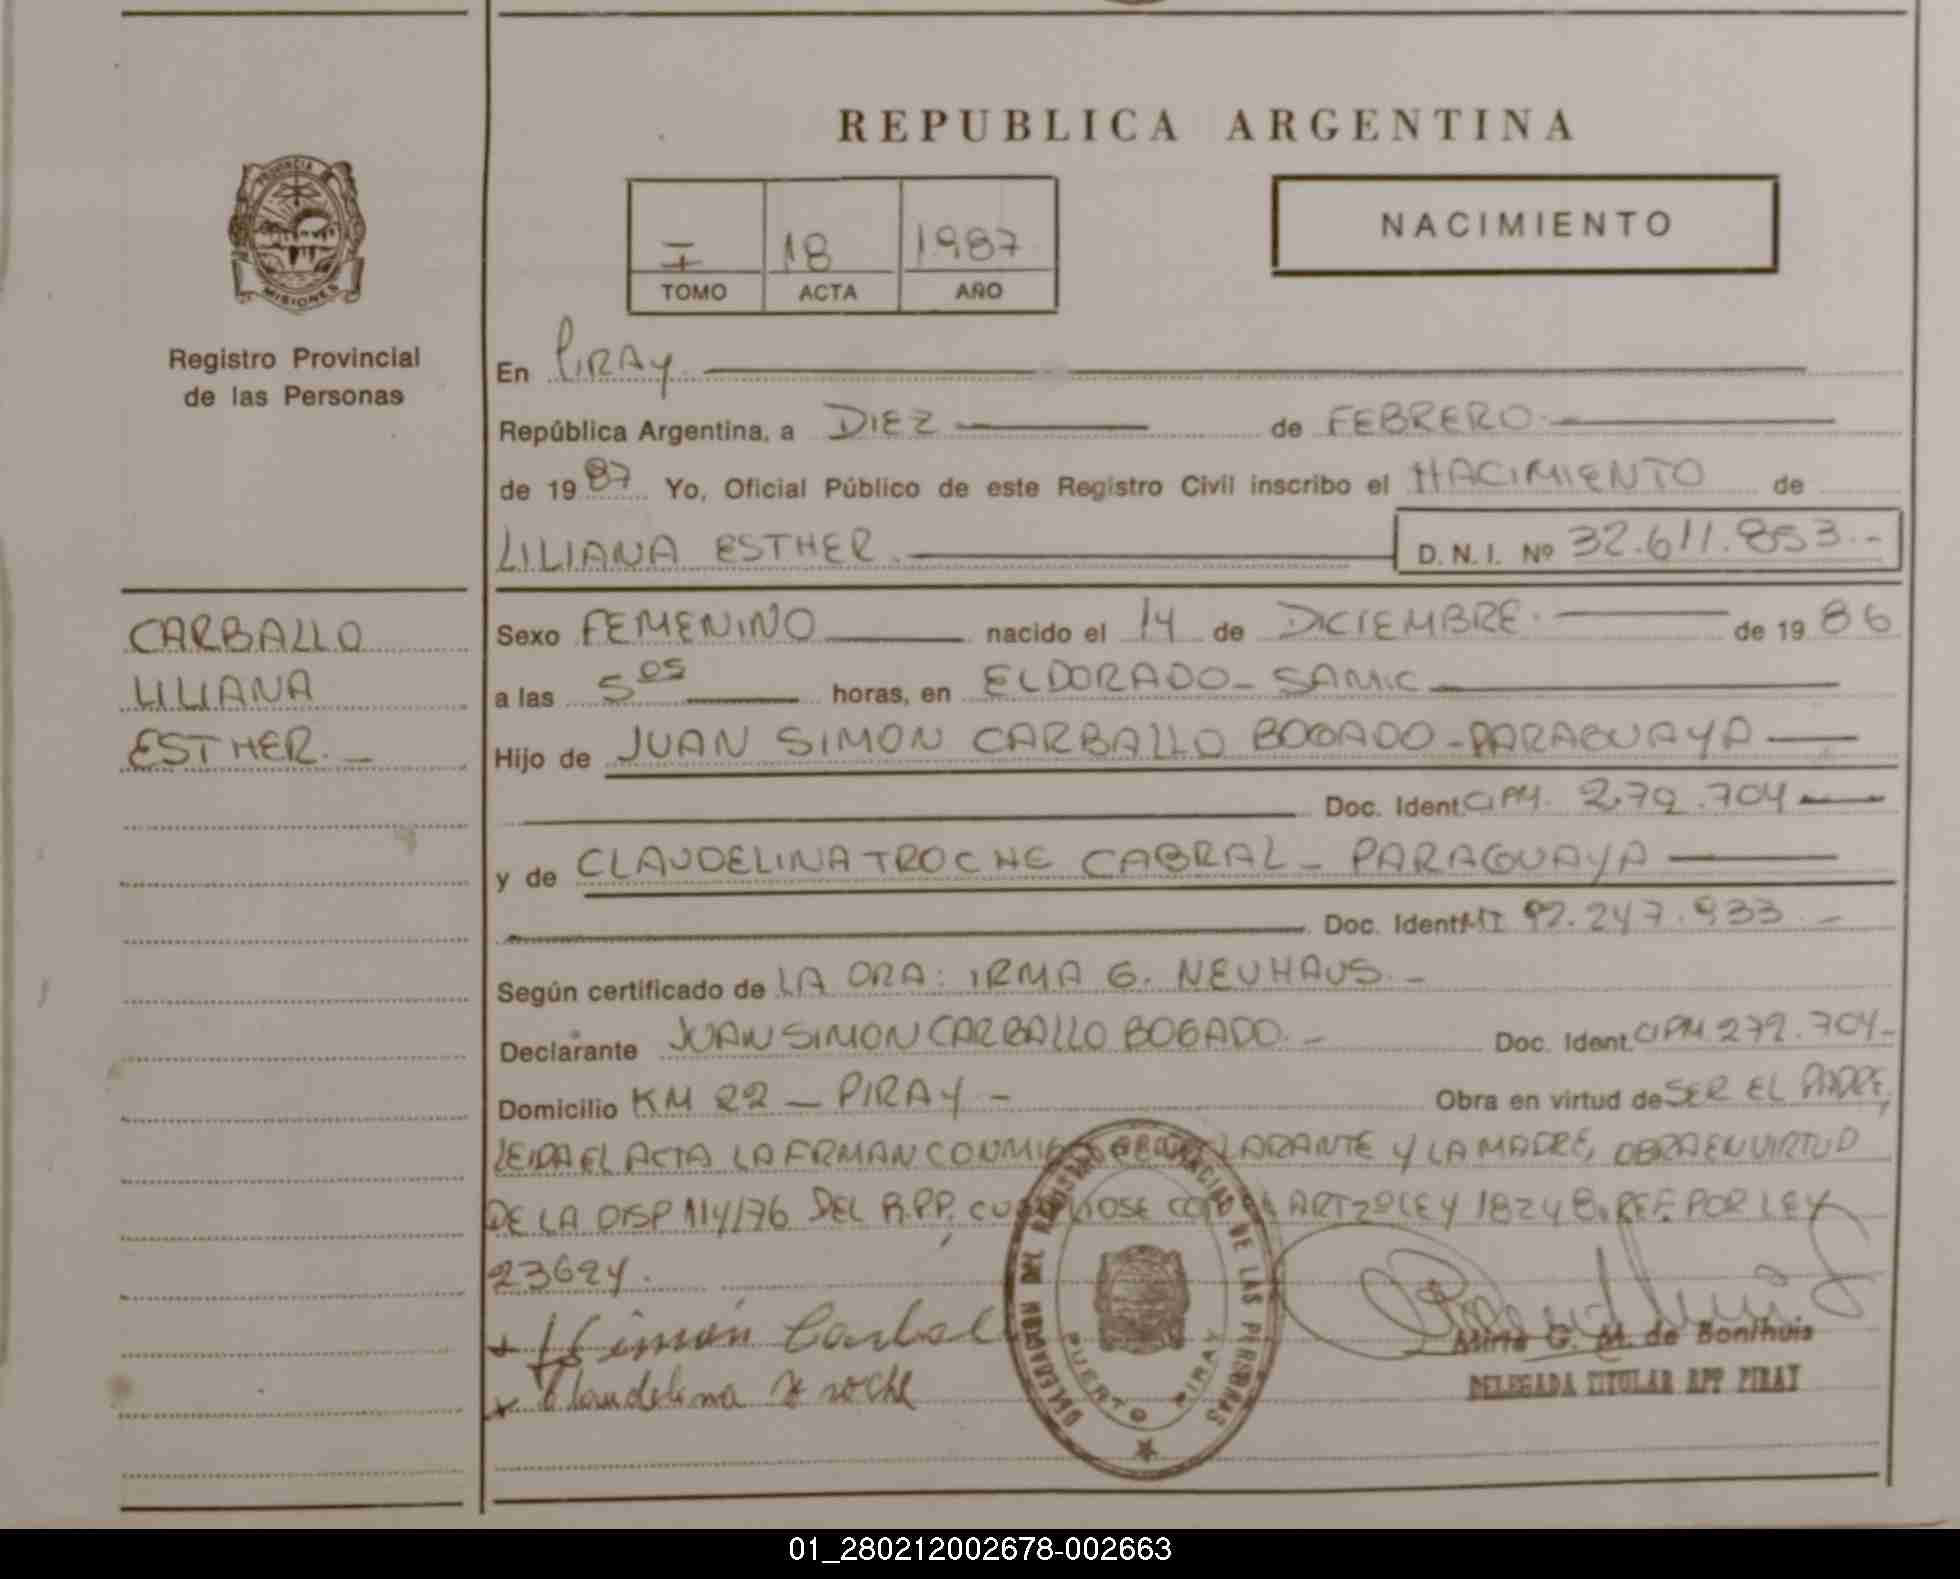 REPUBLICA ARGENTINA
PROVINCIA
MISIONES
Registro Provincial
de las Personas
I 18 1987
TOMO ACTA AÑO
NACIMIENTO
En PIRAY
República Argentina, a DIEZ de FEBRERO.
de 1987 Yo, Oficial Público de este Registro Civil inscribo el NACIMIENTO de
LILIANA ESTHER. D.N.I. Nº 32.611.853.-
CARBALLO
LILIANA
ESTHER.-
Sexo FEMENINO nacido el 14 de DICIEMBRE. de 1986
a las 5 05 horas, en ELDORADO - SAMIC
Hijo de JUAN SIMON CARBALLO BOGADO - PARAGUAYA
Doc. Ident. CIPM. 272.704
y de CLAUDELINA TROCHE CABRAL - PARAGUAYA
Doc. Ident. 92.247.933.-
Según certificado de LA DRA: IRMA G. NEUHAUS.-
Declarante JUAN SIMON CARBALLO BOGADO.- Doc. Ident. CIPM 272.704-
Domicilio KM 22 - PIRAY - Obra en virtud de SER EL PADRE,
LEIDA EL ACTA LA FRMAN CONMIGO EL DECLARANTE Y LA MADRE, OBRA EN VIRTUD
DE LA DISP 114/76 DEL R.P.P, ART 2º LEY 18248. REF. POR LEY
23624.
x J Simón Carbal
x Claudelina Troche
DELEGACION DEL REGISTRO PROVINCIAL DE LAS PERSONAS
PUERTO PIRAY
Mirta G. M. de Bonihuis
DELEGADA TITULAR RPP PIRAY
01_280212002678-002663